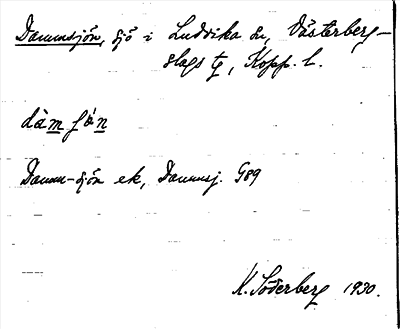 Dammsjön, sjö i Ludvika sn, Västerberg-
slags tg, Kopp. l.
Damm-sjön ek, Dammsj. G89
K. Söderberg 1930.